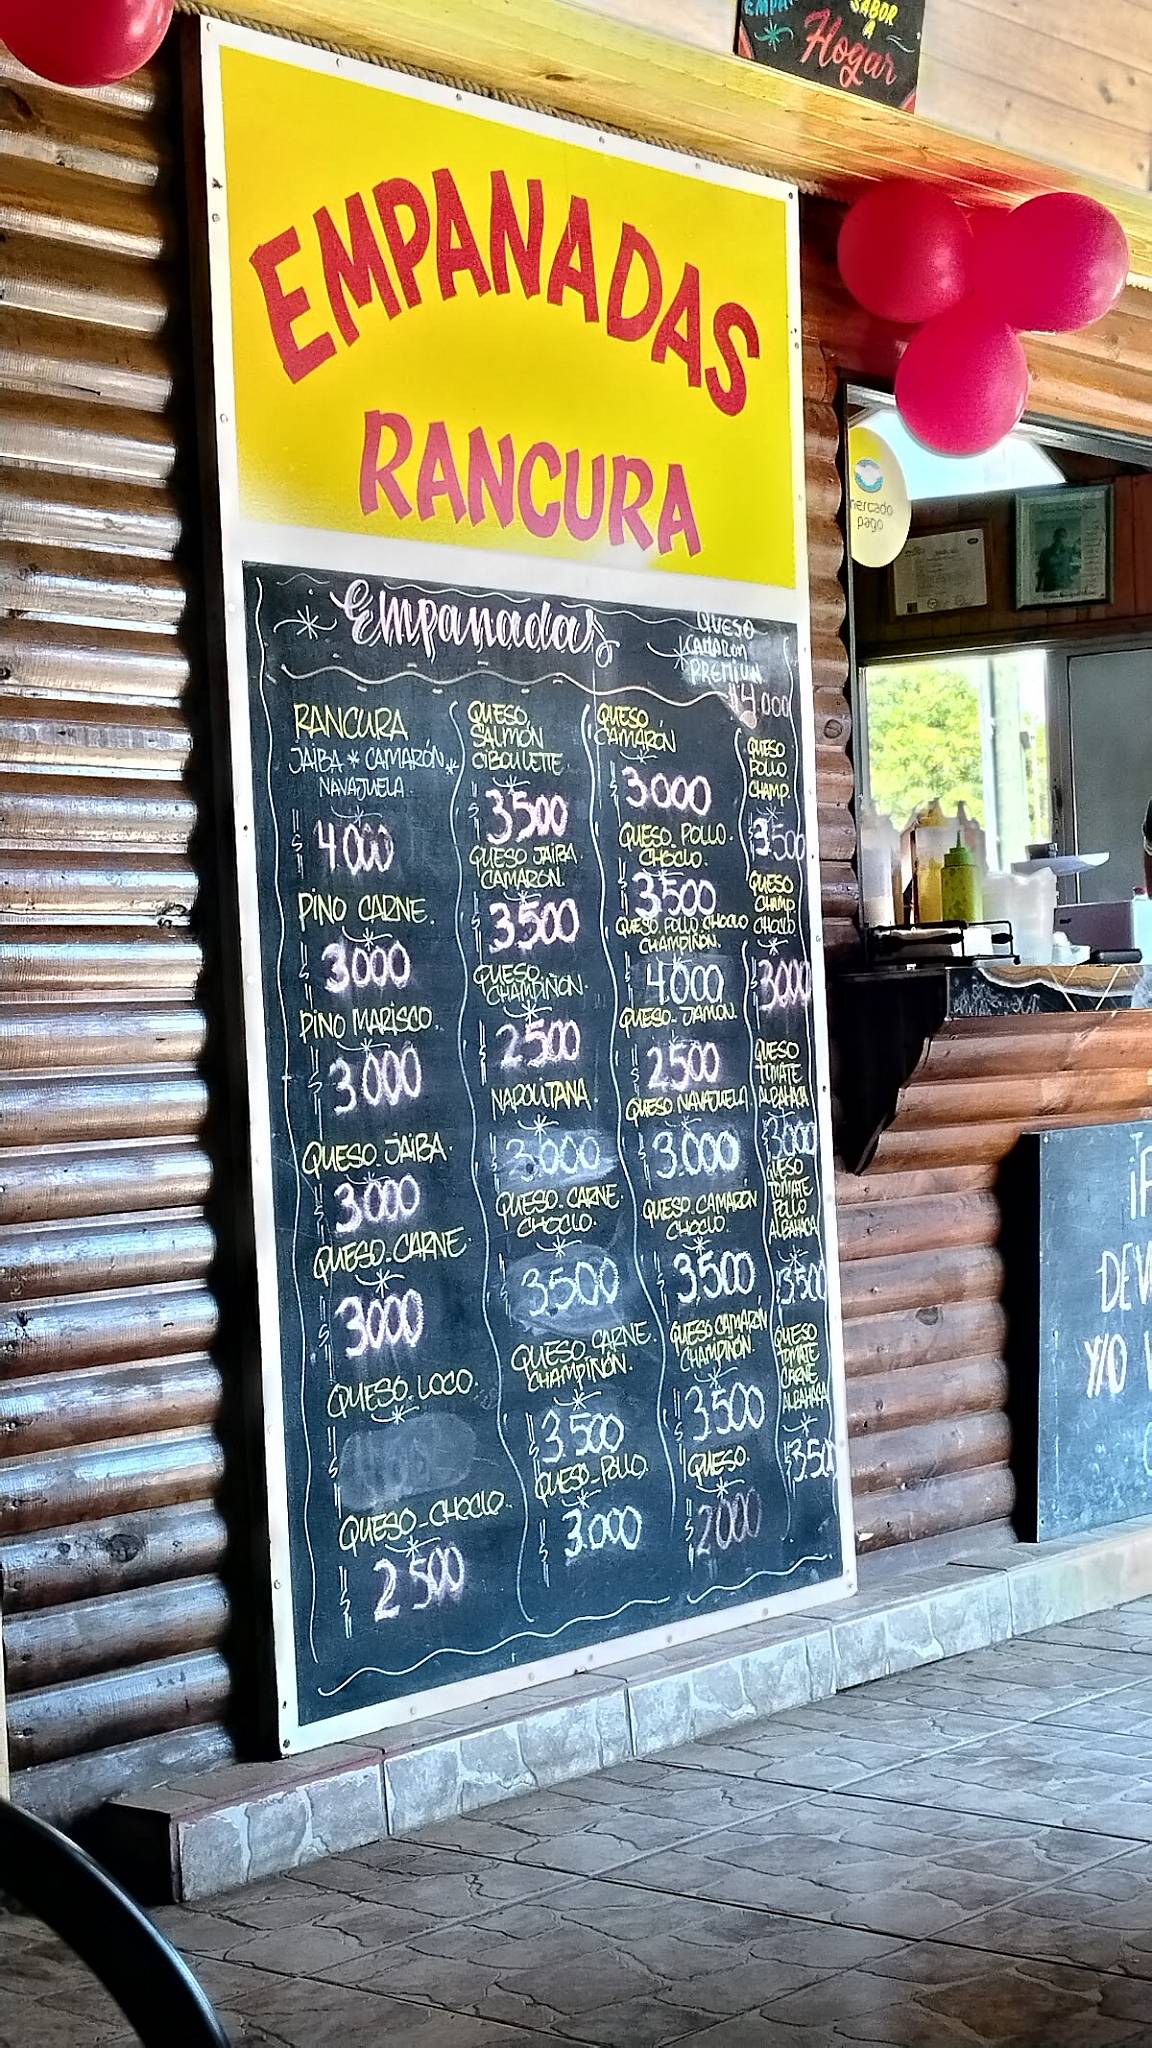 SABOR
A
Hogar
EMPANADAS
RANCURA
mercado
pago
Empanadas
QUESO
CAMARON
PREMIUM
$4.000
RANCURA
JAIBA * CAMARÓN *
NAVAJUELA
$ 4.000
PINO CARNE.
$ 3000
PINO MARISCO.
$ 3.000
QUESO. JAIBA.
$ 3000
QUESO. CARNE.
$ 3000
QUESO. LOCO.
$
QUESO - CHOCLO.
$ 2.500
QUESO.
SALMÓN
CIBOULETTE
$ 3500
QUESO JAIBA
CAMARON.
$ 3500
QUESO.
CHAMPIÑON.
$ 2500
NAPOLITANA.
$ 3.000
QUESO. CARNE.
CHOCLO.
$ 3500
QUESO CARNE.
CHAMPIÑON.
$ 3.500
QUESO - POLLO.
$ 3.000
QUESO.
CAMARÓN
$ 3000
QUESO. POLLO.
CHOCLO.
$ 3500
QUESO. POLLO CHOCLO
CHAMPIÑON.
$ 4.000
QUESO. JAMON.
$ 2500
QUESO NAVAJUELA
$ 3.000
QUESO. CAMARÓN
CHOCLO.
$ 3500
QUESO CAMARÓN
CHAMPIÑON.
$ 3500
QUESO.
$ 2000
QUESO
POLLO
CHAMP.
$3.500
QUESO
CHAMP.
CHOCLO
$3000
QUESO
TOMATE
ALBAHACA
$3000
QUESO
TOMATE
POLLO
ALBAHACA
$3.500
QUESO
TOMATE
CARNE
ALBAHACA
$3.500
DEV
Y/O